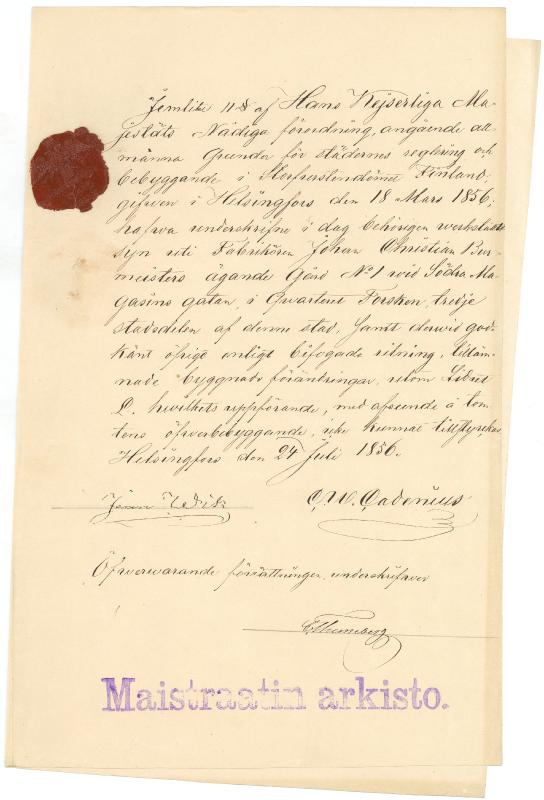 Jemlikt 11 § af Hans Kejserliga Ma-
jestäts Nådiga förordning, angående all-
männa Grunder för städernes reglering och
bebyggande i Storfurstendömet Finland,
gifven i Helsingfors den 18 Mars 1856,
hafva underskrifne i dag behörigen werkstält
syn uti Fabrikören Johan Christian Bur-
meisters ägande Gård No 1 wid Södra Ma-
gasins gatan, i Qvarteret Forsken, tredje
stadsdelen af denna stad, samt derwid god-
känt öfrige enligt bifogade ritning, tilläm-
nade byggnads förändringar, utom Lidret
D. hwilkets uppförande, med afseende å tom-
tens öfwerbebyggande, icke kunnat tillstyrkas,
Helsingfors den 24 Juli 1856.
C. W. Gadenius
Öfwerwarande förrättningen underskrifwer
Maistraatin arkisto.